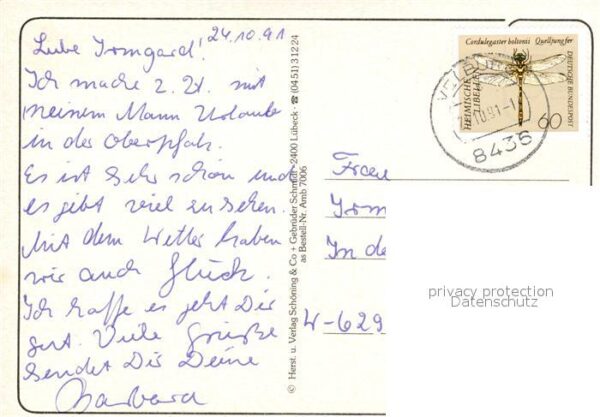 24.10.91
Liebe Irmgard!
Ich mache z. Zt. mit
meinem Mann Urlaub
in der Oberpfalz.
Es ist sehr schön und
es gibt viel zu sehen.
Mit dem Wetter haben
wir auch Glück.
Ich hoffe es geht Dir
gut. Viele Grüße
sendet Dir Deine
Barbara
© Herst. u. Verlag Schöning & Co + Gebrüder Schmidt · 2400 Lübeck · ☎ (0451) 31224
as Bestell-Nr. Amb 7006
Cordulegaster boltonii Quelljungfer
HEIMISCHE
LIBELLEN
DEUTSCHE BUNDESPOST
60
VELBURG
10.91-1
8436
Frau
Irm
In de
W-629
privacy protection
Datenschutz